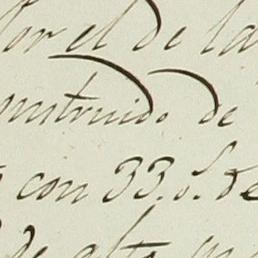 por el de la
nstruido de
con 33. s. de
de alto